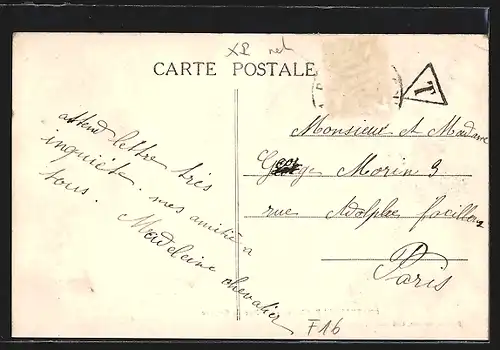 X2 net
CARTE POSTALE
T
attend lettre très
inquiète. mes amitiés a
tous.
Madeleine chevalier
Monsieur et Madame
George Morin 3
rue Adolphe focillon
Paris
F16